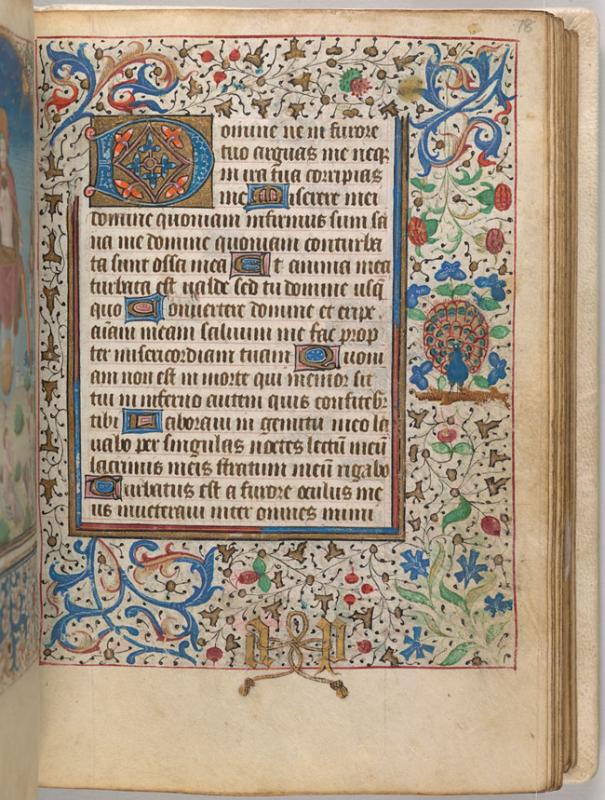 78
Domine ne in furore
tuo arguas me neq
in ira tua corripias
me Miserere mei
domine quoniam infirmus sum sa
na me domine quoniam conturba
ta sunt ossa mea Et anima mea
turbata est ualde sed tu domine usq
quo Conuertere domine et eripe
aīam meam saluum me fac prop
ter misericordiam tuam Quoni
am non est in morte qui memor sit
tui in inferno autem quis confitebr
tibi Laboraui in gemitu meo la
uabo per singulas noctes lectū meū
lacrimis meis stratum meū rigabo
Turbatus est a furore oculus me
us inueteraui inter omnes inimi
a p